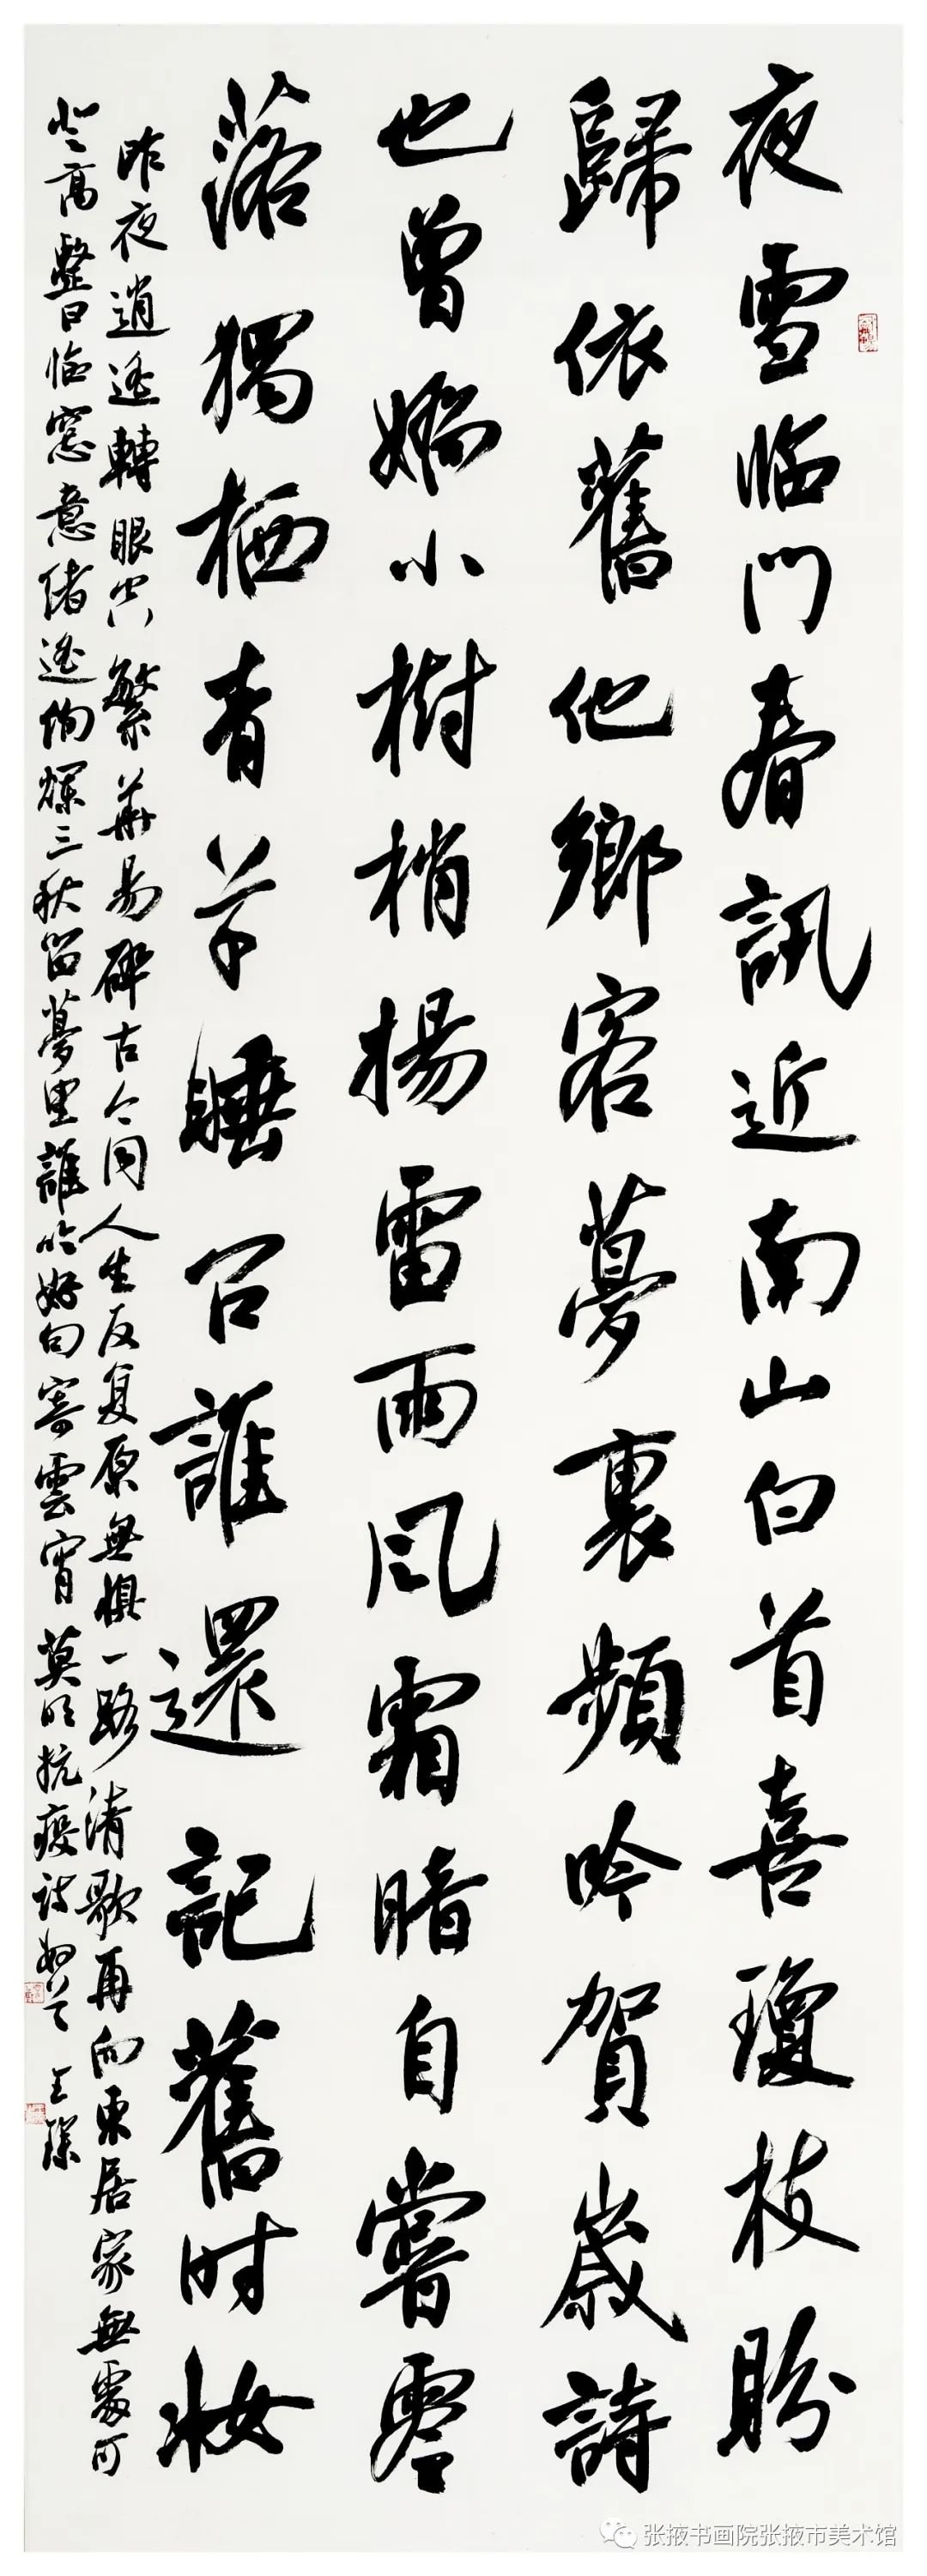 夜雪临門春訊近南山白首喜瓊枝盼
歸依舊他鄉客夢裏頻吟賀歲詩
也曾嬌小樹梢揚雷雨風霜暗自嘗零
落獨栖青草睡召誰還記舊时妝
昨夜逍遥轉眼空繁華易碎古今同人生反复原無懼一路清歌再向東居家無處可
登高整日临窓意绪遥绚爛三秋留夢里誰吟好句寄雲霄 莫明抗疫詩 王
张掖书画院张掖市美术馆